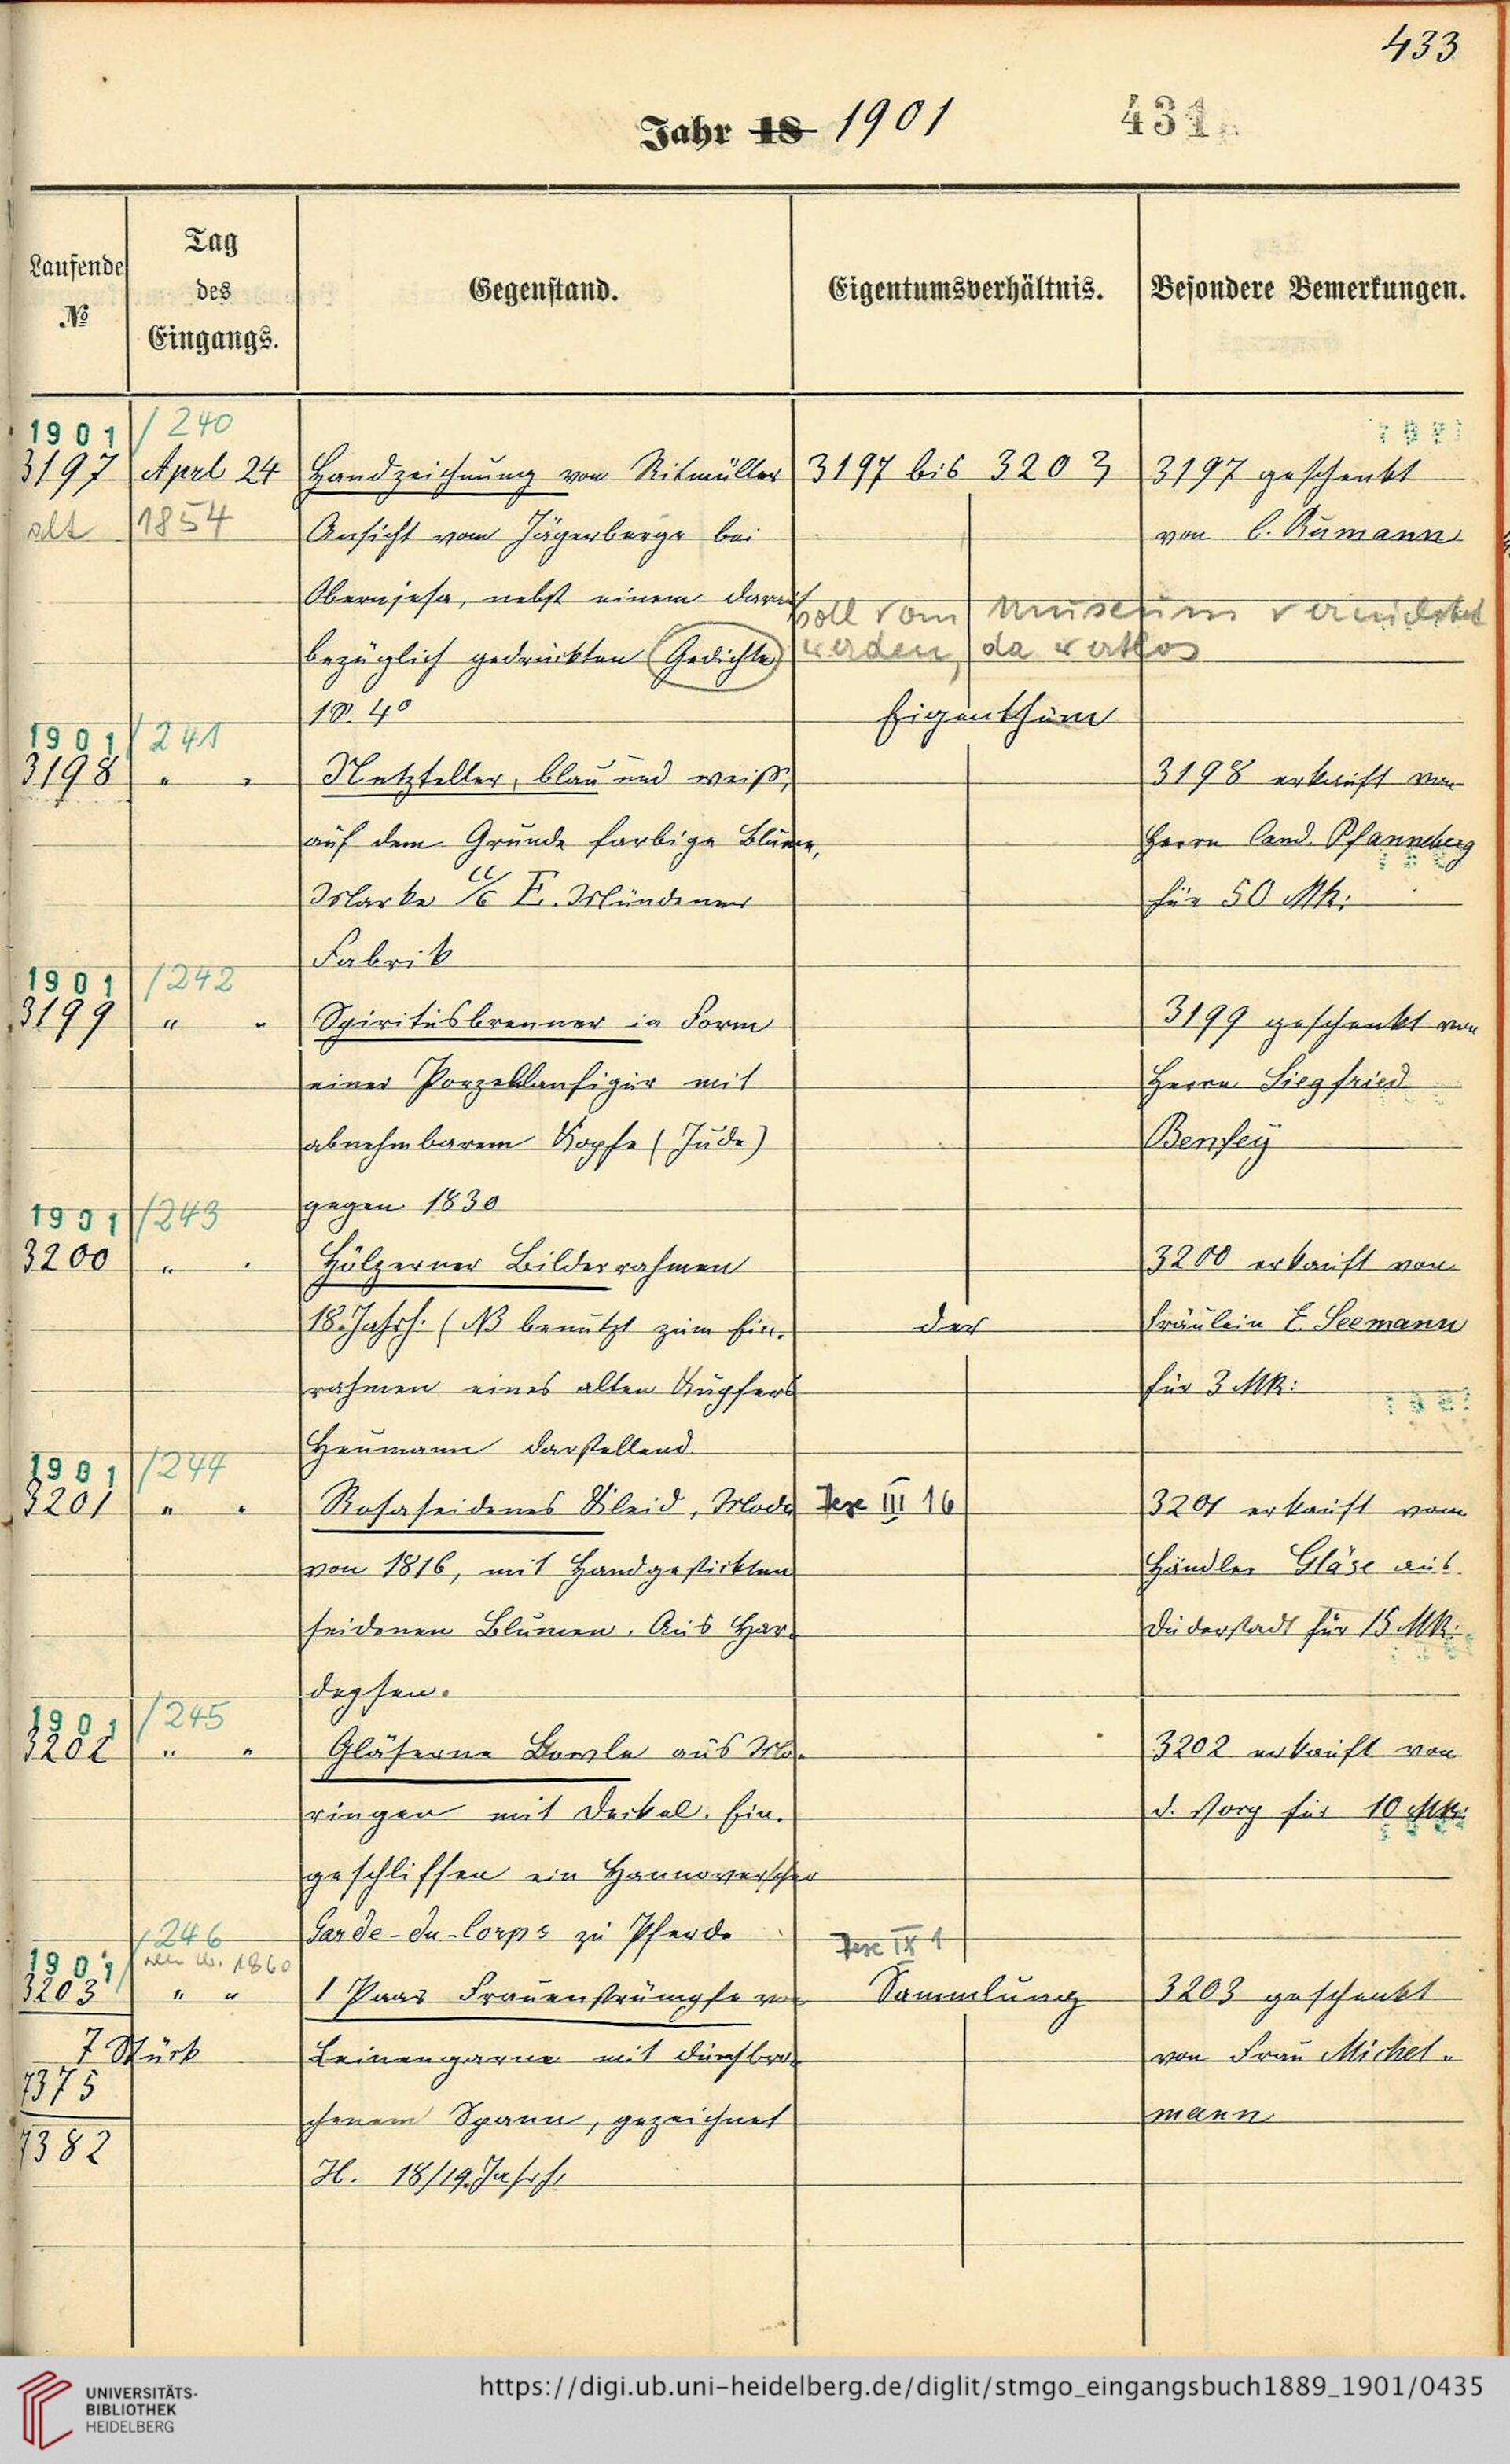 433
Jahr 18 1901 431
Laufende
№
Tag
des
Eingangs.
Gegenstand.
Eigentumsverhältnis.
Besondere Bemerkungen.
1901 / 240
3197 Aprl 24 Handzeichnung von Ritmüller 3197 bis 3203 3197 geschenkt
alt 1854 Ansicht vom Jägerberge bei von C. Rumann
Obernjesa, nebst einem darauf
soll vom Museum vernichtet
bezüglich gedruckten Gedichte werden, da wertlos
18. 4° Eigenthum
1901 / 241
3198 " " Netzteller, blau und weiß, 3198 erkauft von
auf dem Grunde farbige Blume, Herrn Cand. Pfanneberg
Marke F. Mündener für 50 Mk:
Fabrik
1901 / 242
3199 " " Spiritusbrenner in Form 3199 geschenkt von
einer Porzellanfigur mit Herrn Siegfried
abnehmbarem Kopfe (Jude) Benfey
gegen 1830
1901 / 243
3200 " " Hölzerner Bilderrahmen 3200 erkauft von
18. Jahrh. (NB benutzt zum Ein- der Fräulein E. Seemann
rahmen eines alten Kupfers für 3 Mk:
Heumann darstellend
1901 / 244
3201 " " Rosaseidenes Kleid, Mode III 16 3201 erkauft vom
von 1816, mit Handgestickten Händler Gläse aus
seidenen Blumen. Aus Har- Duderstadt für 15 Mk:
degsen.
1901 / 245
3202 " " Gläserne Bowle aus Mo- 3202 erkauft von
ringen mit Deckel. Ein- d. Vorg für 10 Mk:
geschliffen ein Hannoverscher
Garde-du-Corps zu Pferde
/ 246
1901 1860 IX 1
3203 " " 1 Paar Frauenstrümpfe von Sammlung 3203 geschenkt
7 Stück Leinengarne mit durchbro- von Frau Michel-
7375 chenem Spann, gezeichnet mann
7382 H. 18/19. Jahrh.
UNIVERSITÄTS-
BIBLIOTHEK
HEIDELBERG
https://digi.ub.uni-heidelberg.de/diglit/stmgo_eingangsbuch1889_1901/0435